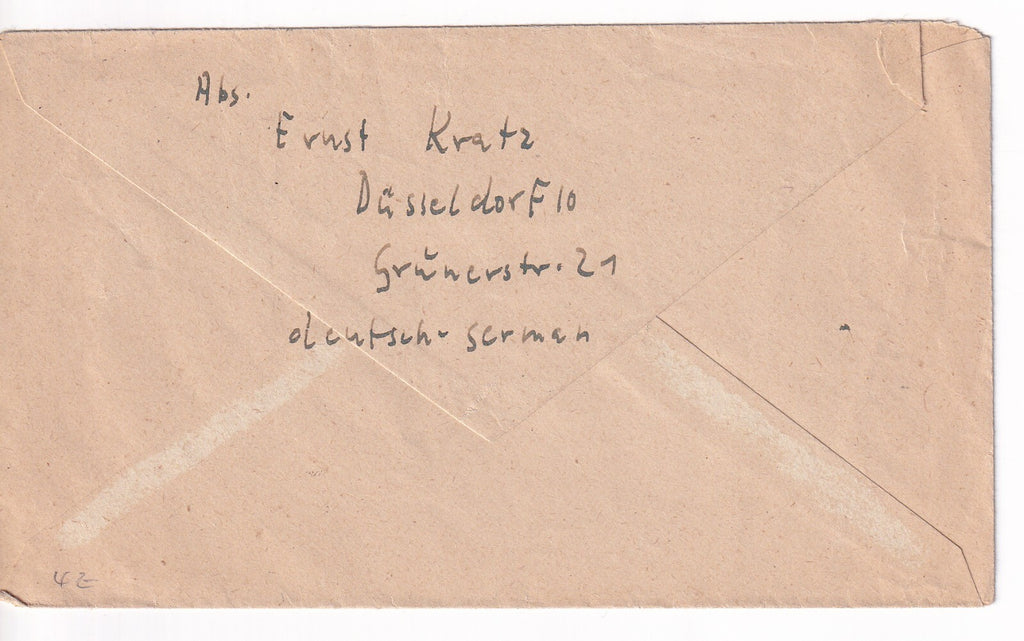 Abs.
Ernst Kratz
Düsseldorf 10
Grünerstr. 21
deutsch-german